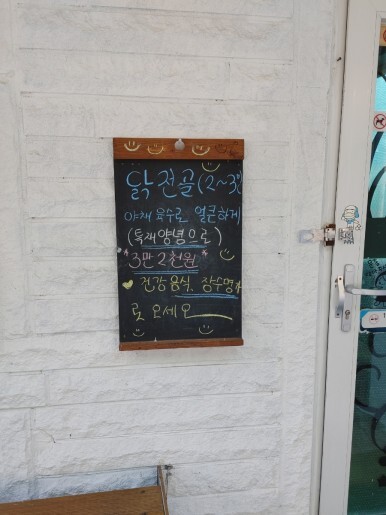 닭전골(2~3인)
야채 육수로 얼큰하게
(특재양념으로)
"3만2천원"
건강음식, 장수명가
로 오세요